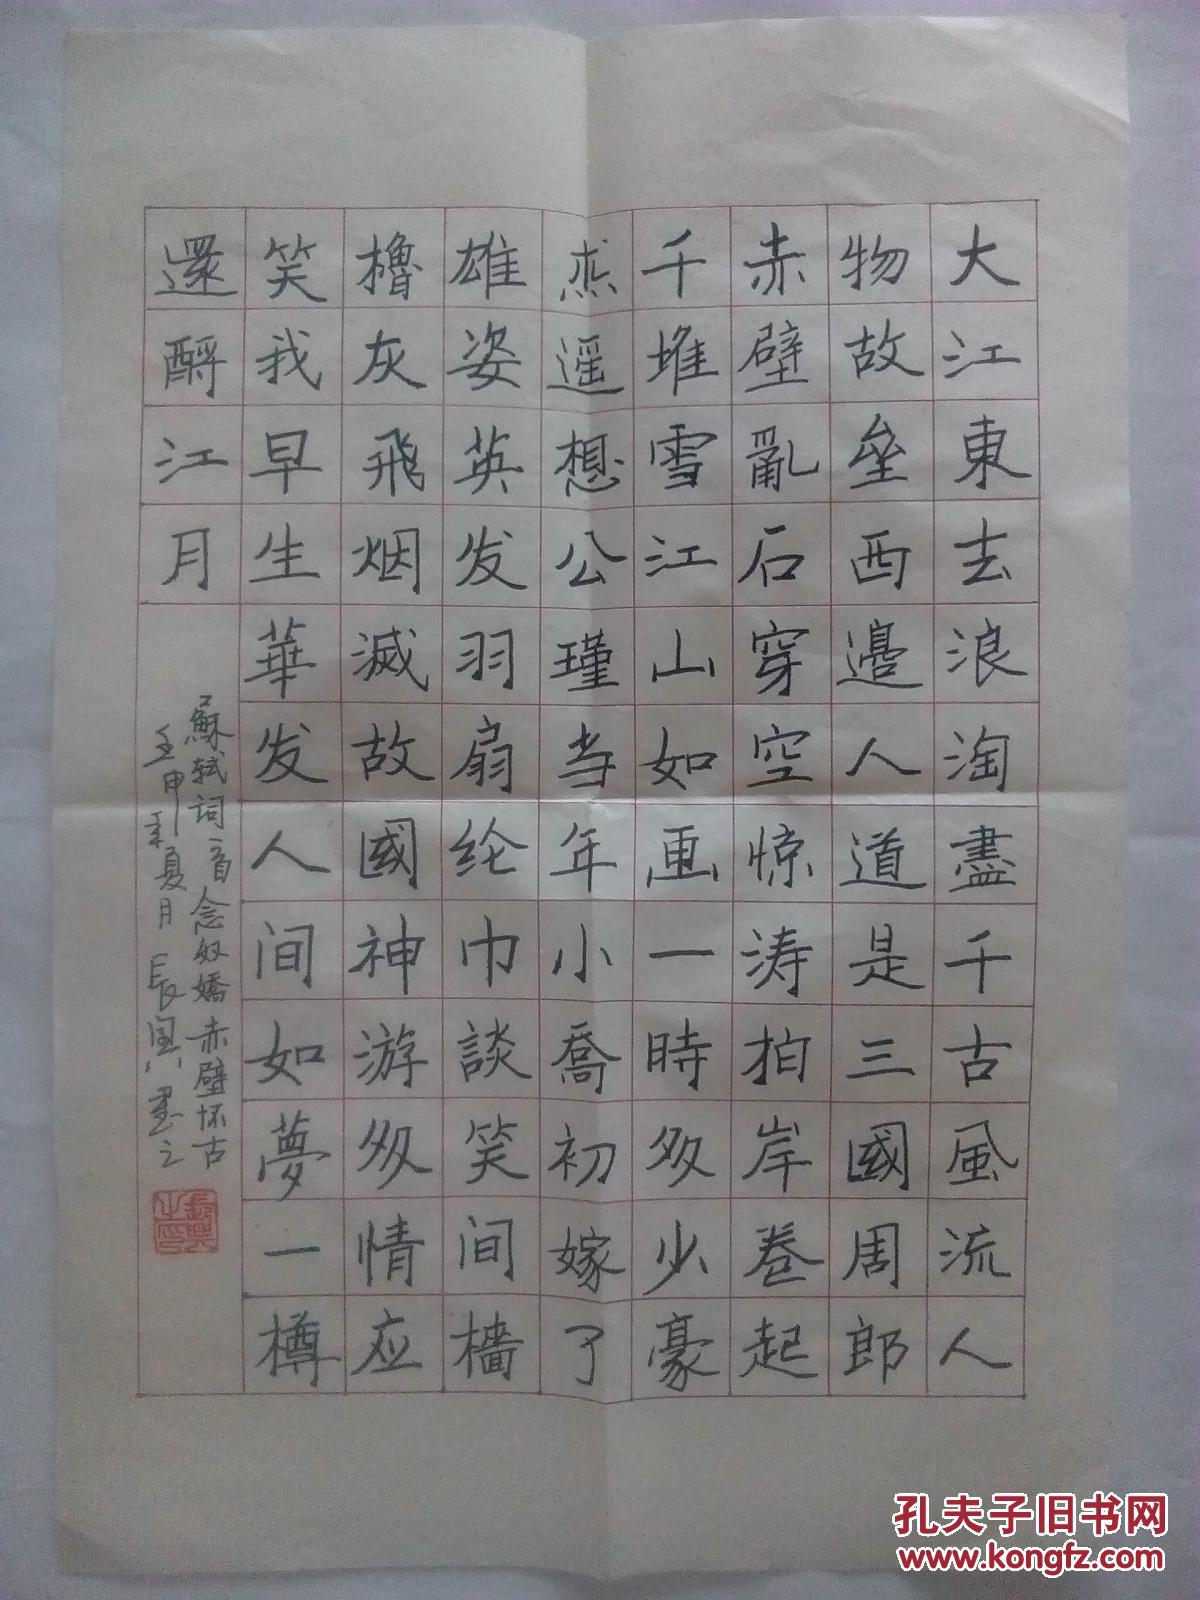 大江東去浪淘盡千古風流人
物故垒西邊人道是三國周郎
赤壁亂石穿空惊涛拍岸卷起
千堆雪江山如画一時多少豪
杰遥想公瑾当年小喬初嫁了
雄姿英发羽扇纶巾談笑间檣
櫓灰飛烟滅故國神游多情应
笑我早生華发人间如夢一樽
還酹江月
蘇轼词一首念奴嬌赤壁怀古
壬申年夏月長興書之
孔夫子旧书网
www.kongfz.com